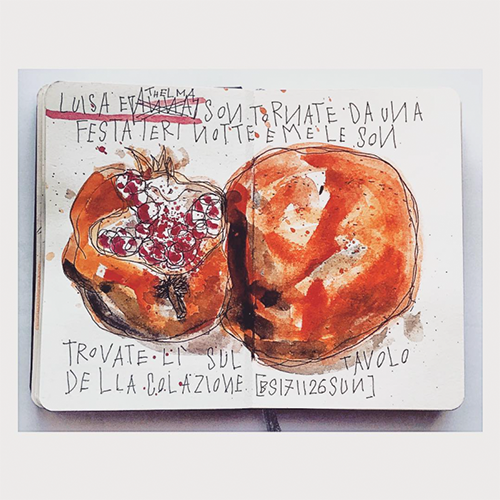 THELMA
LUISA E ANNA SON TORNATE DA UNA
FESTA IERI NOTTE E ME LE SON
TROVATE LÌ SUL TAVOLO
DELLA COLAZIONE [BS171126SUN]